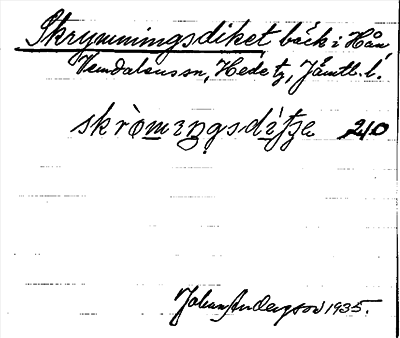 Skrymningsdiket bäck i Hån,
Vemdalens sn, Hede tg, Jämtl. l.
skròmiŋsdìtje 240
Johan Anderson 1935.